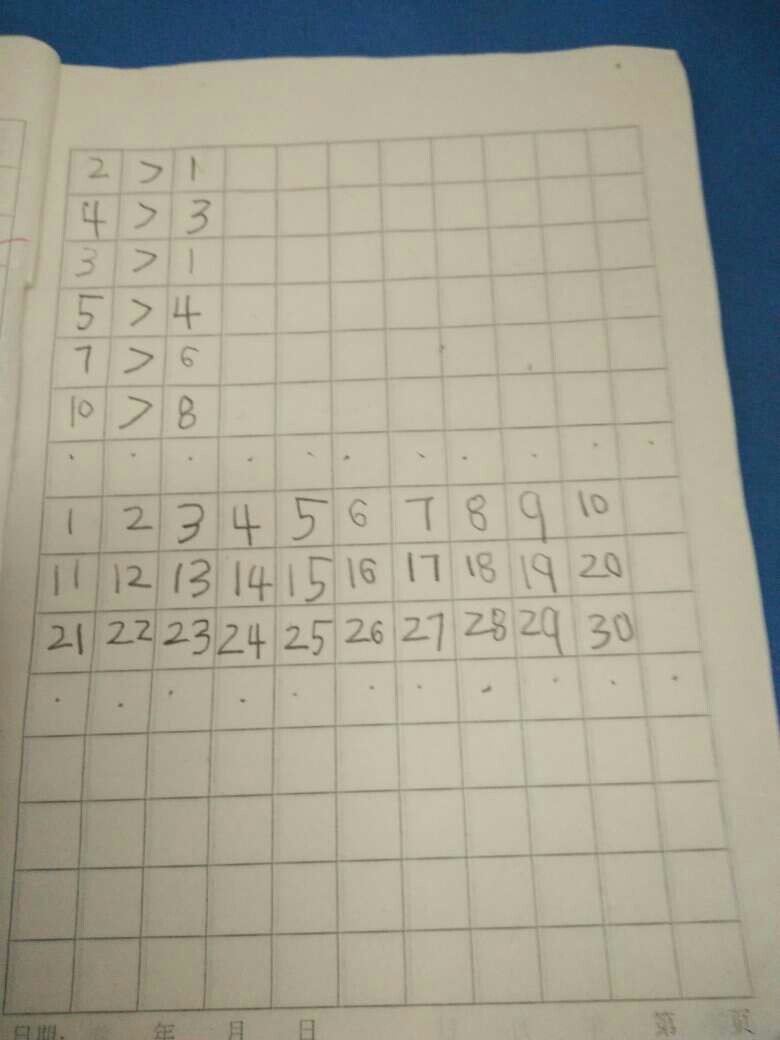 2 > 1
4 > 3
3 > 1
5 > 4
7 > 6
10 > 8
· · · · · · · · · · ·
1 2 3 4 5 6 7 8 9 10
11 12 13 14 15 16 17 18 19 20
21 22 23 24 25 26 27 28 29 30
· · · · · · · · · · ·
日期: 年 月 日 第 页